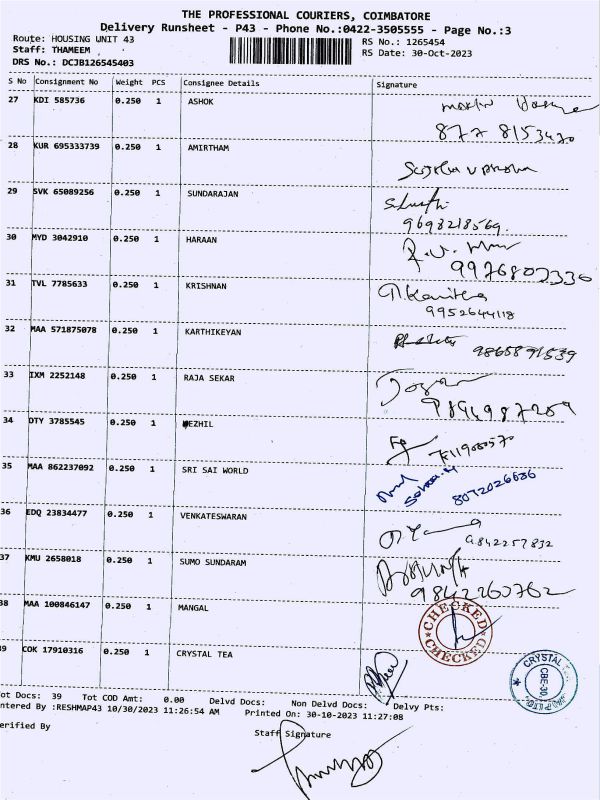 THE PROFESSIONAL COURIERS, COIMBATORE
Delivery Runsheet - P43 - Phone No.:0422-3505555 - Page No.:3
Route: HOUSING UNIT 43 RS No.: 1265454
Staff: THAMEEM RS Date: 30-Oct-2023
DRS No.: DCJB126545403
S No Consignment No Weight PCS Consignee Details Signature
27 KDI 585736 0.250 1 ASHOK
28 KUR 695333739 0.250 1 AMIRTHAM
29 SVK 65089256 0.250 1 SUNDARAJAN
9698218569
30 MYD 3042910 0.250 1 HARAAN
31 TVL 7785633 0.250 1 KRISHNAN
9952644118
32 MAA 571875078 0.250 1 KARTHIKEYAN
33 IXM 2252148 0.250 1 RAJA SEKAR
34 OTY 3785545 0.250 1 EZHIL
35 MAA 862237092 0.250 1 SRI SAI WORLD
8072026636
36 EDQ 23834477 0.250 1 VENKATESWARAN
9842257832
37 KMU 2658018 0.250 1 SUMO SUNDARAM
9842260762
38 MAA 100846147 0.250 1 MANGAL
CHECKED
CHECKED
39 COK 17910316 0.250 1 CRYSTAL TEA
CRYSTAL
CBE-30.
Tot Docs: 39 Tot COD Amt: 0.00 Delvd Docs: Non Delvd Docs: Delvy Pts:
ntered By :RESHMAP43 10/30/2023 11:26:54 AM Printed On: 30-10-2023 11:27:08
erified By Staff Signature